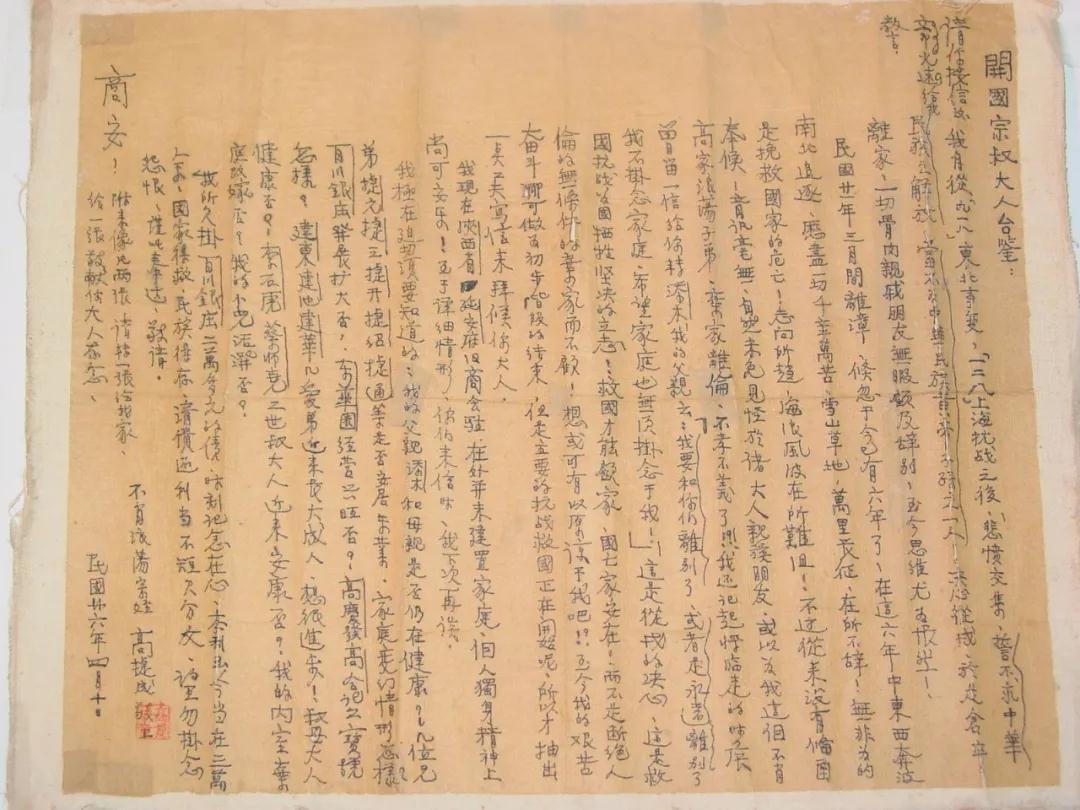 開國宗叔大人台鑒：
請你接信後、我自從「九一八」東北事變，「一二八」上海抗战之後，悲憤交集，誓不求中華
民族之解放，當不為中華民族黃帝子孫之一人！決志從戎，於是倉卒
離家，一切骨肉親戚朋友無暇顧及辞别，至今思維尤為悵然！
民國廿一年三月間離漳，候忽于今已有六年了，在這六年中東西奔波
南北追逐，歷盡一切千辛萬苦，雪山草地，萬里長征，在所不辞！無非為的
是挽救國家的危亡！志向所趨，海浪風波在所難阻！不过從来沒有修函
奉候！音訊毫無，自然未免見怪於諸大人親族朋友，或以為我這個不肖
高家浪蕩子弟，棄家離倫，不孝不義了！則我还记起惟臨走的时候
曾留一信給你轉添木我的父親云：我要和你们離别了，或者是永遠離别了
我不掛念家庭，希望家庭也無須掛念于我！」這是從戎的决心，這是救
國抗战為國牺牲坚决的立志！救國才能顧家，國亡家安在！而不是断绝人
倫的無条件的棄家而不顧！想或可有以原谅于我吧！？至今我的艰苦
奋斗，哪可做為初步階段的结束，但走主要的抗战救國正在開始呢，所以才抽出
一点天寫信来拜候你大人。
我現在陕西省延安府但商会駐，在外并未建置家庭，個人獨身精神上
尚可安乐！至于详细情形，你们来信时，我下次再谈。
我極在迫切須要知道的：我的父親添木和母親是否仍在健康？几位兄
弟捷元捷三捷开捷绍捷通等是否安居乐業，家庭受的情形怎樣？
百川銀庄發展扩大否？东華園经营兴旺否？高慶發高合记么寶號
怎樣？建東建池建華几愛弟近来长大成人，想很進步！叔母大人
健康否？李石虎蔡师尧二世叔大人近来安康否？我的内室華
庭改嫁否？我的小兒活潑否？
我所久掛百川銀庄二萬余元的債，时刻记念在心，本利至今当在三萬
余，國家得救，民族得存，清償還利当不短欠分文，請勿掛念
怨恨，谨此奉达，敬请。
商安！
附来像片两张，请转一张给我家，
给一張敬献你大人存念、
不肖浪蕩宗姪　高捷成
民國廿六年四月十日